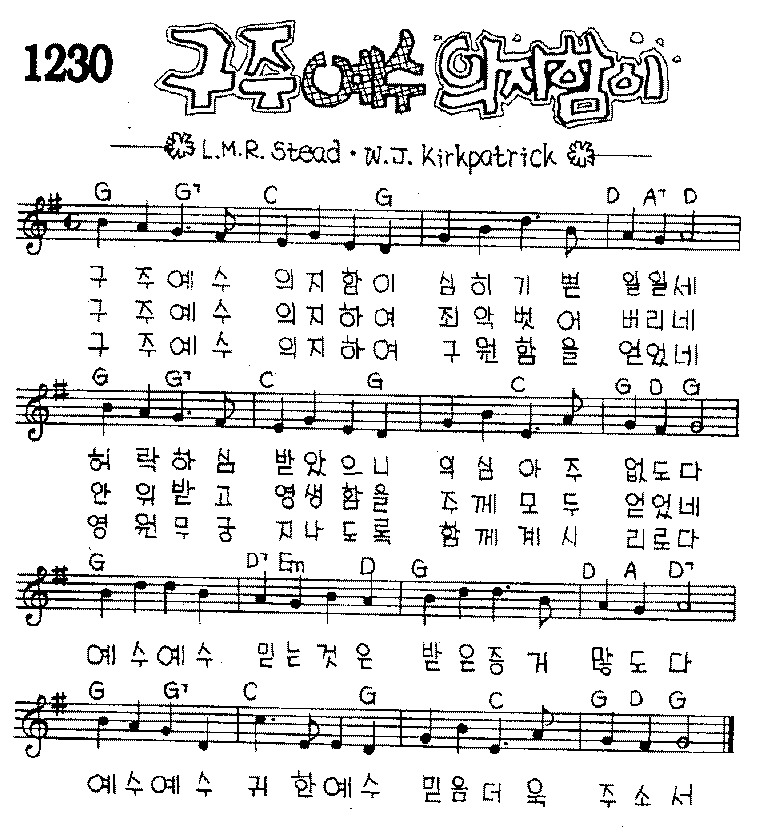 1230 구주 예수 의지함이
L.M.R. Stead · W.J. Kirkpatrick
G G7 C G D A7 D
구 주 예 수 의 지 함 이 심 히 기 쁜 일 일 세
구 주 예 수 의 지 하 여 죄 악 벗 어 버 리 네
구 주 예 수 의 지 하 여 구 원 함 을 얻 었 네
G G7 C G C G D G
허 락 하 심 받 았 으 니 의 심 아 주 없 도 다
안 위 받 고 영 생 함 을 주 께 모 두 얻 었 네
영 원 무 궁 지 나 도 록 함 께 계 시 리 로 다
G D7 Em D G D A D7
예 수 예 수 믿 는 것 은 받 은 증 거 많 도 다
G G7 C G C G D G
예 수 예 수 귀 한 예 수 믿 음 더 욱 주 소 서